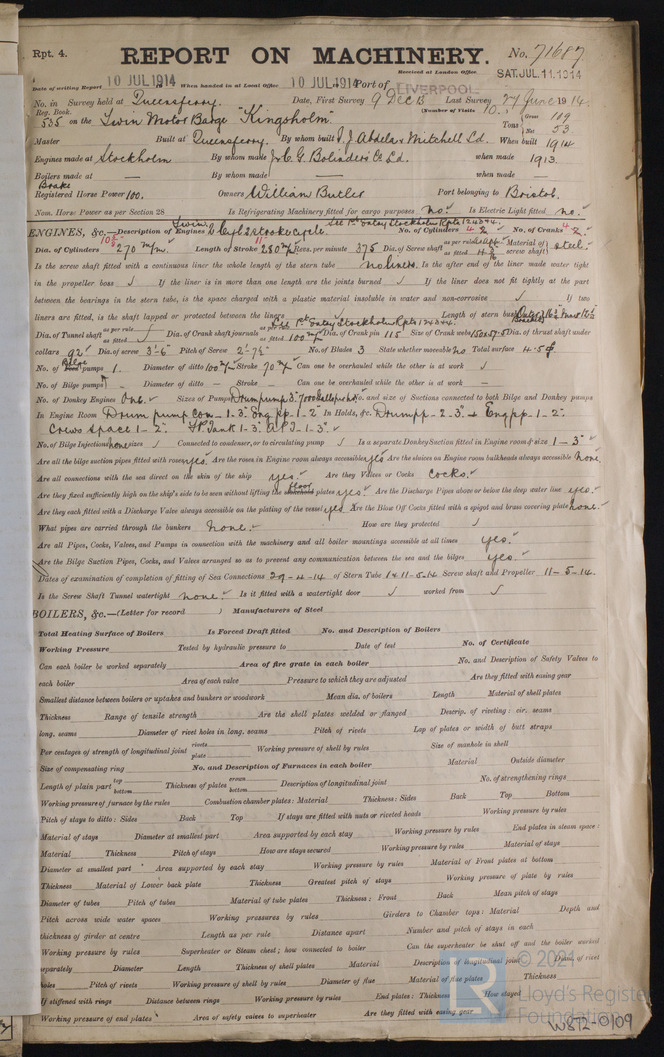 Rpt. 4. REPORT ON MACHINERY. No. 71687
Received at London Office SAT. JUL. 11. 1914
Date of writing Report 10 JUL 1914 When handed in at Local Office 10 JUL. 1914 Port of LIVERPOOL
No. in Survey held at Queensferry. Date, First Survey 9 Dec 13 Last Survey 27 June 1914
Reg. Book. (Number of Visits 10.)
535 on the Twin Motor Barge "Kingsholm" Tons Gross 119 Net 53
Master Built at Queensferry. By whom built I. J. Abdela & Mitchell Ld. When built 1914
Engines made at Stockholm By whom made J. & C. G. Bolinders Co Ld. when made 1913.
Boilers made at — By whom made — when made —
Brake
Registered Horse Power 100. Owners William Butler Port belonging to Bristol.
Nom. Horse Power as per Section 28 Is Refrigerating Machinery fitted for cargo purposes no. Is Electric Light fitted no.
ENGINES, &c.—Description of Engines Twin 2 Cyl 2 stroke cycle. See 1st Entry Stockholm Rpts 1243+4. No. of Cylinders 4 No. of Cranks 4
Dia. of Cylinders 270 m/m. Length of Stroke 280 m/m Revs. per minute 375 Dia. of Screw shaft as per rule as fitted Material of screw shaft steel.
Is the screw shaft fitted with a continuous liner the whole length of the stern tube no liners. Is the after end of the liner made water tight
in the propeller boss ✓ If the liner is in more than one length are the joints burned ✓ If the liner does not fit tightly at the part
between the bearings in the stern tube, is the space charged with a plastic material insoluble in water and non-corrosive ✓ If two
liners are fitted, is the shaft lapped or protected between the liners ✓ Length of stern bush
Dia. of Tunnel shaft as per rule as fitted ✓ Dia. of Crank shaft journals as per rule See 1st Entry Stockholm Rpts 1243+4. as fitted 100 m/m Dia. of Crank pin 115 Size of Crank webs 150x57.5 Dia. of thrust shaft under
collars 92 Dia. of screw 3'-6" Pitch of Screw 2'-7½" No. of Blades 3 State whether moveable no Total surface 4.5
No. of Bilge pumps 1. Diameter of ditto 100 m/m Stroke 70 m/m Can one be overhauled while the other is at work ✓
No. of Bilge pumps — Diameter of ditto — Stroke — Can one be overhauled while the other is at work —
No. of Donkey Engines One. Sizes of Pumps Drum pump 3". No. and size of Suctions connected to both Bilge and Donkey pumps
In Engine Room Drum pump Con — 1-3". Eng pp. 1-2" In Holds, &c. Drum pp — 2-3" & Eng pp — 1-2".
Crews space 1-2". F.P. Tank 1-3". A.P.T. 1-3".
No. of Bilge Injections none sizes ✓ Connected to condenser, or to circulating pump ✓ Is a separate Donkey Suction fitted in Engine room & size 1-3"
Are all the bilge suction pipes fitted with roses yes. Are the roses in Engine room always accessible yes Are the sluices on Engine room bulkheads always accessible none
Are all connections with the sea direct on the skin of the ship yes. Are they Valves or Cocks Cocks.
Are they fixed sufficiently high on the ship's side to be seen without lifting the floor plates yes. Are the Discharge Pipes above or below the deep water line yes.
Are they each fitted with a Discharge Valve always accessible on the plating of the vessel yes. Are the Blow Off Cocks fitted with a spigot and brass covering plate none.
What pipes are carried through the bunkers none. How are they protected ✓
Are all Pipes, Cocks, Valves, and Pumps in connection with the machinery and all boiler mountings accessible at all times yes.
Are the Bilge Suction Pipes, Cocks, and Valves arranged so as to prevent any communication between the sea and the bilges yes
Dates of examination of completion of fitting of Sea Connections 29-4-14 of Stern Tube 1 & 11-5-14 Screw shaft and Propeller 11-5-14.
Is the Screw Shaft Tunnel watertight none. Is it fitted with a watertight door ✓ worked from ✓
BOILERS, &c.—(Letter for record ) Manufacturers of Steel
Total Heating Surface of Boilers Is Forced Draft fitted No. and Description of Boilers
Working Pressure Tested by hydraulic pressure to Date of test No. of Certificate
Can each boiler be worked separately Area of fire grate in each boiler No. and Description of Safety Valves to
each boiler Area of each valve Pressure to which they are adjusted Are they fitted with easing gear
Smallest distance between boilers or uptakes and bunkers or woodwork Mean dia. of boilers Length Material of shell plates
Thickness Range of tensile strength Are the shell plates welded or flanged Descrip. of riveting: cir. seams
long. seams Diameter of rivet holes in long. seams Pitch of rivets Lap of plates or width of butt straps
Per centages of strength of longitudinal joint rivets plate Working pressure of shell by rules Size of manhole in shell
Size of compensating ring No. and Description of Furnaces in each boiler Material Outside diameter
Length of plain part top bottom Thickness of plates crown bottom Description of longitudinal joint No. of strengthening rings
Working pressure of furnace by the rules Combustion chamber plates: Material Thickness: Sides Back Top Bottom
Pitch of stays to ditto: Sides Back Top If stays are fitted with nuts or riveted heads Working pressure by rules
Material of stays Diameter at smallest part Area supported by each stay Working pressure by rules End plates in steam space:
Material Thickness Pitch of stays How are stays secured Working pressure by rules Material of stays
Diameter at smallest part Area supported by each stay Working pressure by rules Material of Front plates at bottom
Thickness Material of Lower back plate Thickness Greatest pitch of stays Working pressure of plate by rules
Diameter of tubes Pitch of tubes Material of tube plates Thickness: Front Back Mean pitch of stays
Pitch across wide water spaces Working pressures by rules Girders to Chamber tops: Material Depth and
thickness of girder at centre Length as per rule Distance apart Number and pitch of stays in each
Working pressure by rules Superheater or Steam chest; how connected to boiler Can the superheater be shut off and the boiler worked
separately Diameter Length Thickness of shell plates Material Description of longitudinal joint Diam. of rivet
holes Pitch of rivets Working pressure of shell by rules Diameter of flue Material of flue plates Thickness
If stiffened with rings Distance between rings Working pressure by rules End plates: Thickness How stayed
Working pressure of end plates Area of safety valves to superheater Are they fitted with easing gear
© 2021
Lloyd's Register
Foundation
W872-0109